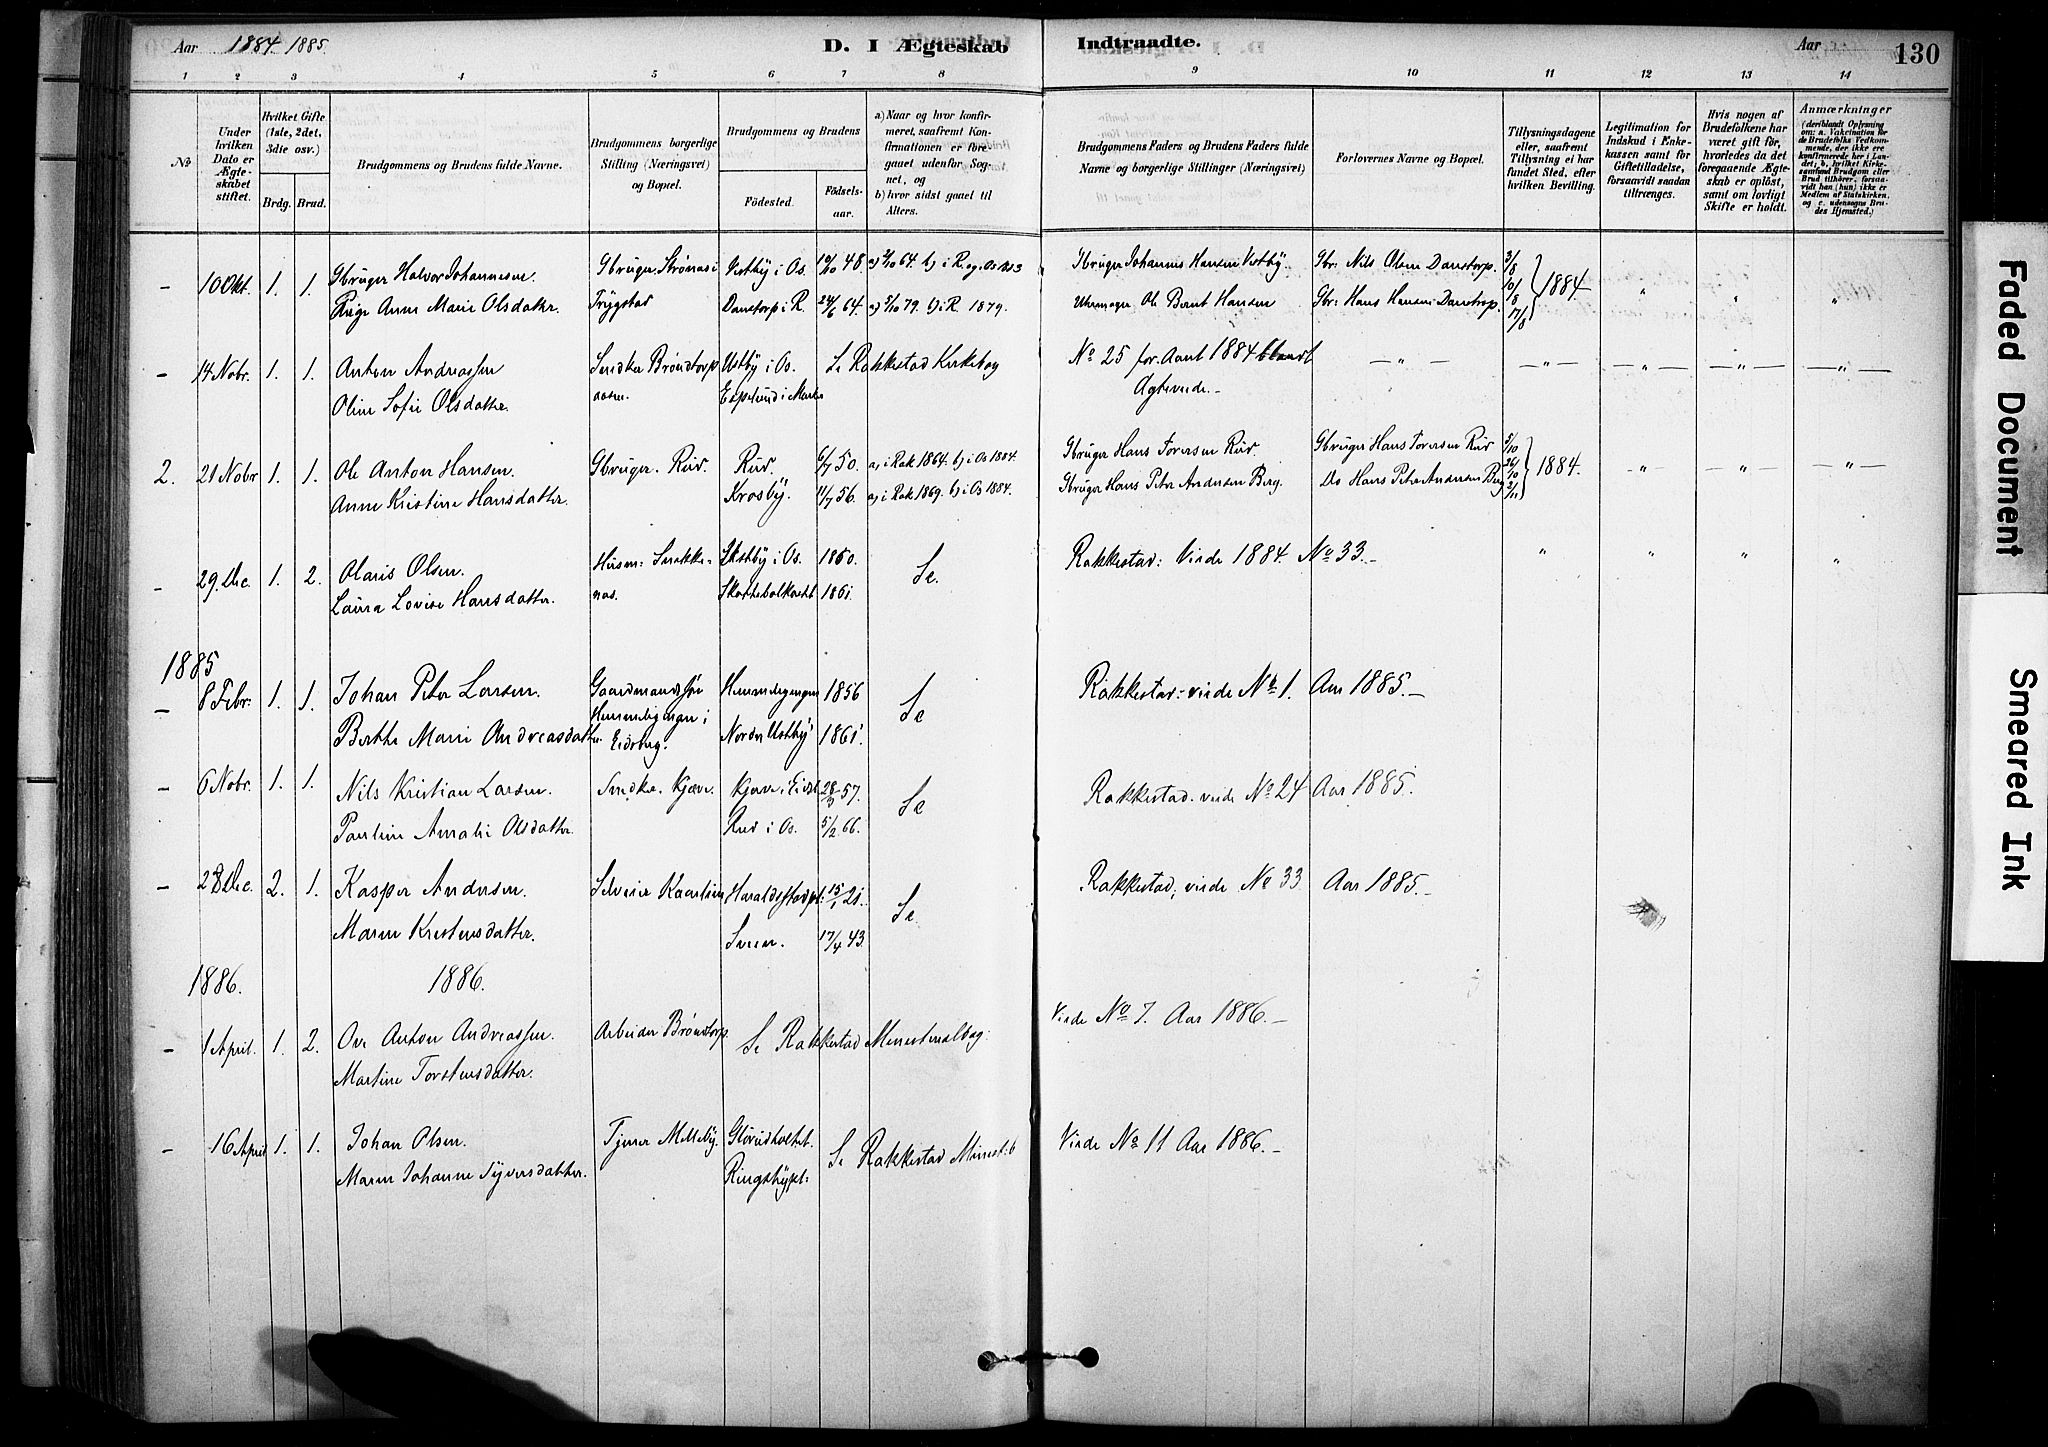 Aar 1884 1885.
D. I Ægteskab Indtraadte.
Aar 130
1 2 3 4 5 6 7 8 9 10 11 12 13 14
No
Under hvilken Dato er Ægteskabet stiftet.
Hvilket Gifte (1ste, 2det, 3die osv.)
Brdg. Brud.
Brudgommens og Brudens fulde Navne.
Brudgommens borgerlige Stilling (Næringsvei) og Bopæl.
Brudgommens og Brudens
Fødested. Fødselsaar.
a) Naar og hvor konfirmeret, saafremt Konfirmationen er foregaaet udenfor Sognet, og
b) hvor sidst gaaet til Alters.
Brudgommens Faders og Brudens Faders fulde Navne og borgerlige Stillinger (Næringsvei)
Forlovernes Navne og Bopæl.
Tillysningsdagene eller, saafremt Tillysning ei har fundet Sted, efter hvilken Bevilling.
Legitimation for Indskud i Enkekassen samt for Giftetilladelse, forsaavidt saadan tiltrænges.
Hvis nogen af Brudefolkene har været gift før, hvorledes da det foregaaende Ægteskab er opløst, samt om lovligt Skifte er holdt.
Anmærkninger
(deriblandt Oplysning om: a. Vakcination for de Brudefolks Vedkommende, der ikke ere konfirmerede her i Landet; b. hvilket Kirkesamfund Brudgom eller Brud tilhører, forsaavidt han (hun) ikke er Medlem af Statskirken, og c. udensogns Brudes Hjemsted.)
- 10 Okt. 1. 1. Gbruger Halvor Johannesen. Gbruger Strønæs i Vestby i Os. 19/10 48 a) 2/10 64. b) i R. og Os Gbruger Johannes Hansen Vestby. Gbr: Nils Olsen Danstorp. 3/8
Pige Anne Marie Olsdatter. Trygstad Danstorp i R. 24/6 64. a) 5/10 79. b) i R. 1879. Uhrmager Ole Bernt Hansen Gbr: Hans Hansen Danstrop. 10/8 17/8 1884 " " "
- 14 Nobr. 1. 1. Anton Andreassen Snedker Brøndtorp Ustby i Os. Se Rakkestad Kirkebog No 25 for Aaret 1884 blandt — " — — " — — " — — " — — " —
Oline Sofie Olsdatter. aasen. Espelund i Marker Ægtevirde.-
2. 21 Nobr 1. 1. Ole Anton Hansen. Gbruger. Rud. Rud. 6/7 50. a) i Rak 1864. b) i Os 1884. Gbruger Hans Toresen Rud. Gbruger Hans Toresen Rud 5/10
Anne Kristine Hansdatter. Krosby. 11/7 56. a) i Rak 1869. b) i Os 1884. Gbruger Hans Peter Andersen Berg. Do Hans Peter Andersen Berg 26/10 2/11 1884. — " — — " — — " —
- 29. Dec. 1. 2. Olaris Olsen. Husm: Snekke- Ustby i Os. 1860. Se. Rakkestad: Virde 1884. No 33.- " " " "
Laura Lovise Hansdatter. næs. 1861.
1885
- 8 Febr: 1. 1. Johan Peter Larsen. Gaardmandssøn 1856 Se Rakkestad: virde No 1. Aar 1885.-
Berthe Marie Andreasdatter. Eidsberg. Nordre Ustby 1861.
- 6 Nobr. 1. 1. Nils Kristian Larsen. Snedker. Kjæve. Kjæve i Eidsb. 28/9 57. Se Rakkestad. virde No 24 Aar 1885.
Pauline Amalie Olsdatter. Rud i Os. 5/2 66.
- 28 Dec. 2. 1. Kasper Andersen. Selveier 15/1 21. Se. Rakkestad; virde No 33 Aar 1885.-
Maren Kristensdatter. Sveen. 17/4 43.
1886. 1886.
- 1 April. 1. 2. Ove Anton Andreassen. Arbeider Brøndtorp Se Rakkestad Ministerialbog. Virde No 7. Aar 1886.-
Martine Torstensdatter.
- 16 April 1. 1. Johan Olsen. Tjener Melleby. Glørudholtet. Se Rakkestad Minist:b Virde No 11 Aar 1886.-
Maren Johanne Syversdatter.
Faded Document
Smeared Ink